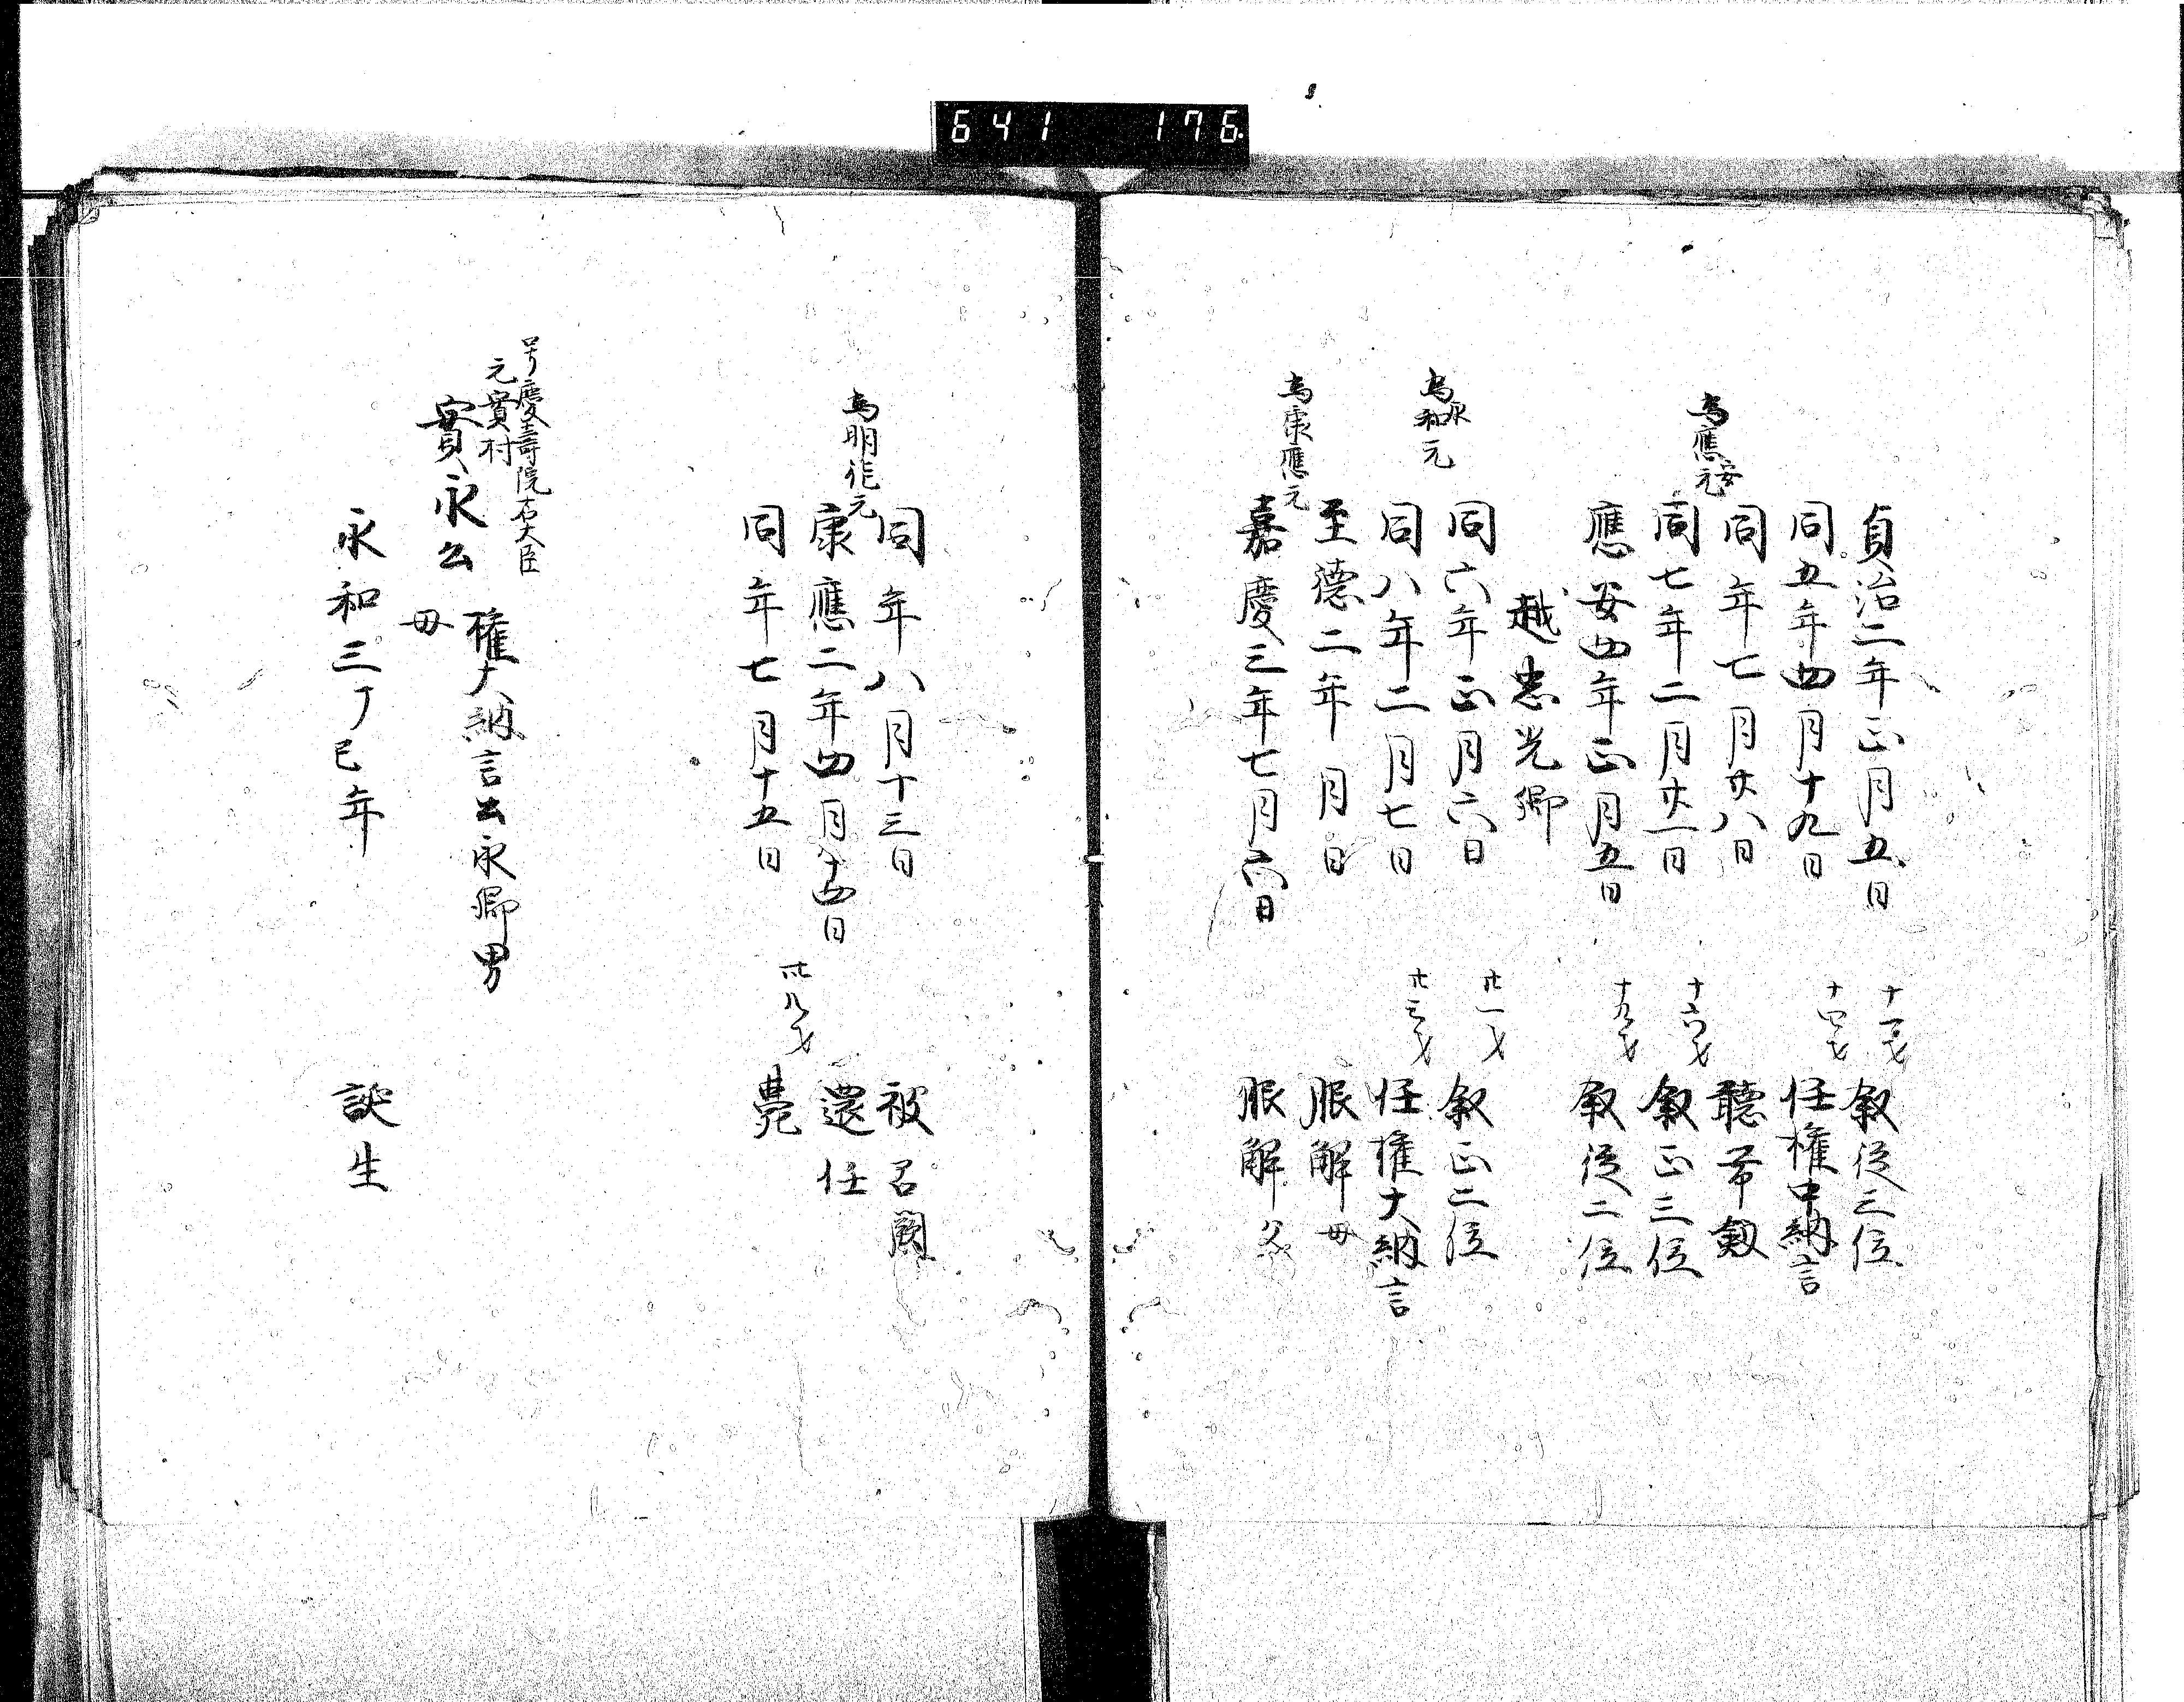 641 176
貞治二年正月五日 十一才 叙従三位
同五年四月十九日 十四才 任権中納言
同年七月廿八日 聴帯剱
為應安元
同七年二月廿一日 十六才 叙正三位
應安四年正月五日 十九才 叙従二位
越忠光卿
同六年正月六日 廿一才 叙正二位
為永和元
同八年二月七日 廿三才 任権大納言
至徳二年 月 日 服解母
為康應元
嘉慶三年七月六日 服解父
同年八月十三日 被召闕
為明徳元
康應二年四月十四日 還任
同年七月十五日 卅八才 薨
号慶壽院右大臣
元實村
權大納言公永卿男
實永公
母
永和三丁巳年 誕生